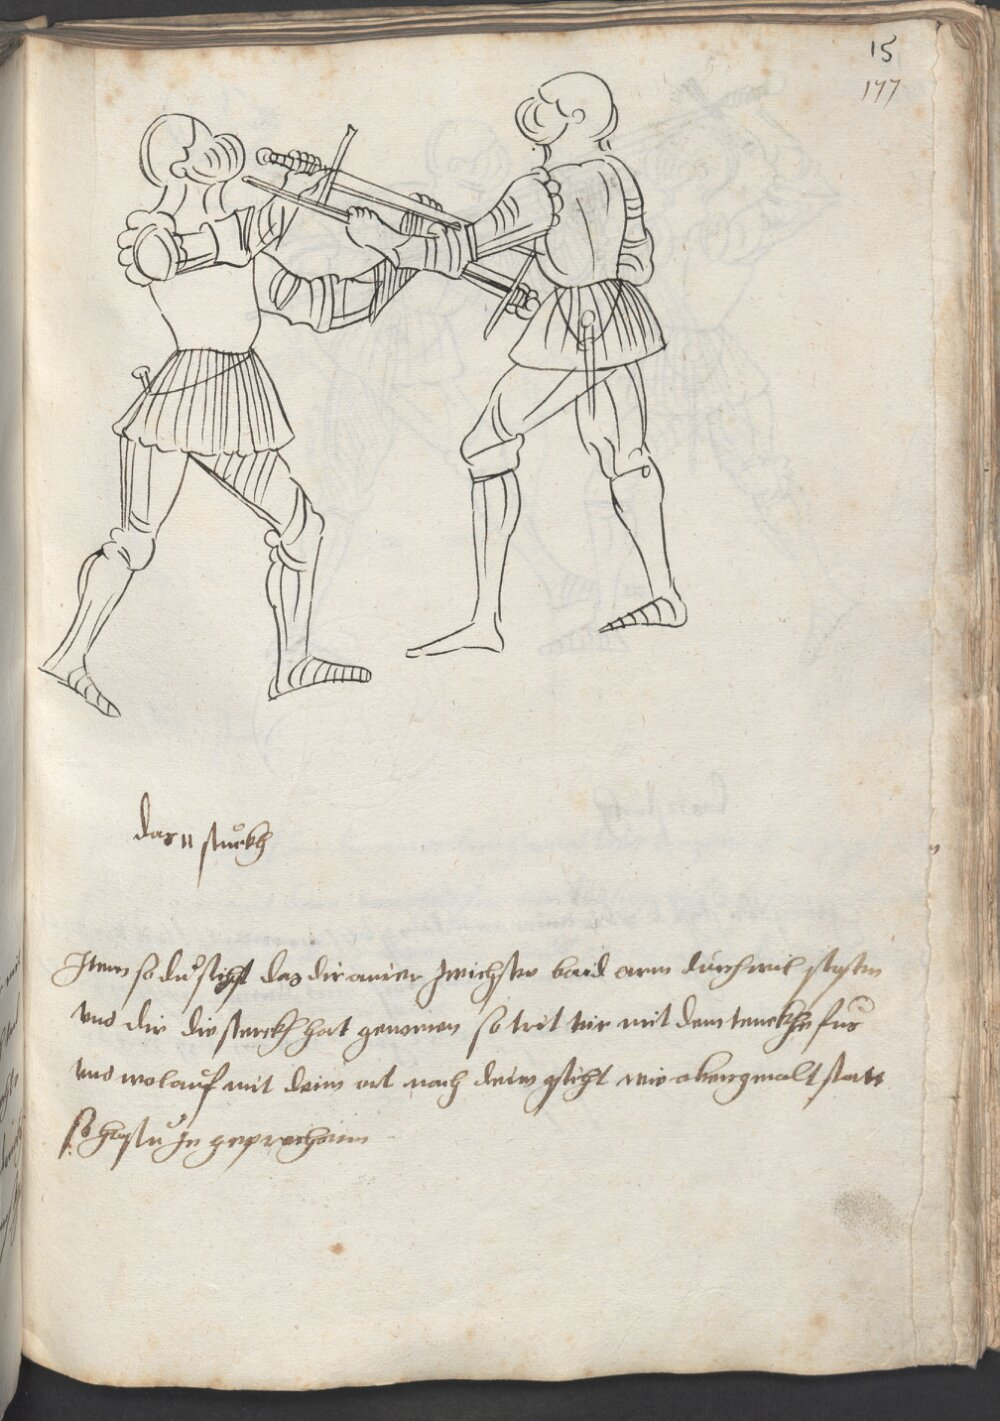 15
177
das 11 stuckh
Item so du sichst das dir ainer zwischen baid arm durch wil stosen
und dir die sterckh hat genomen so trit mit dem tenckhe fus
und wol auf mit deim ort nach deim gsicht wie oben gmalt statt
so hastu Jn geprochenn